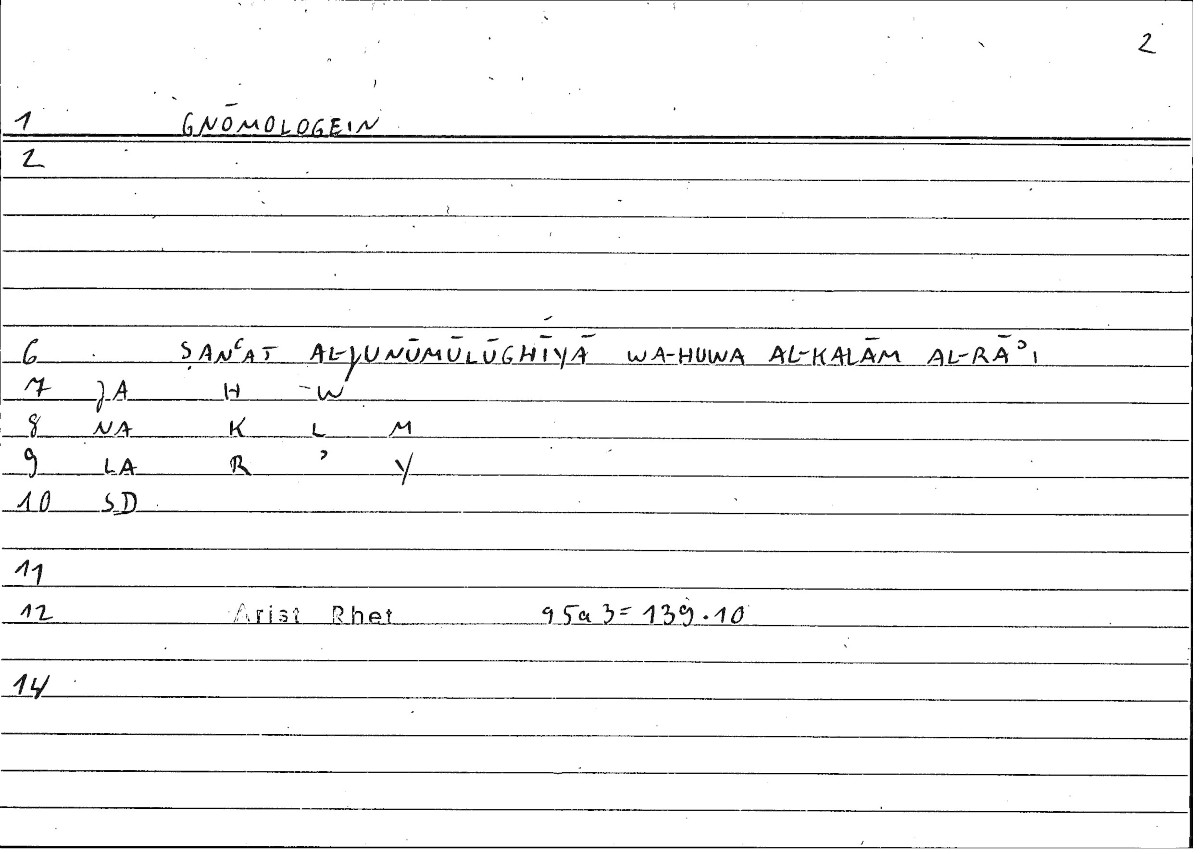 2
1 GNŌMOLOGEIN
2
6 ṢANʿAT AL-JUNŪMŪLŪGHĪYĀ WA-HUWA AL-KALĀM AL-RĀʾI
7 JA H -W
8 NA K L M
9 LA R ʾ Y
10 SD
11
12 Arist Rhet 95a3=139.10
14